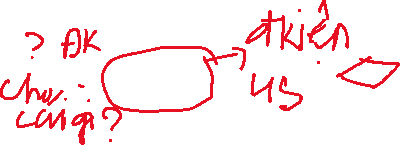 ? ĐK
cho
cái gì?
đkiện
US